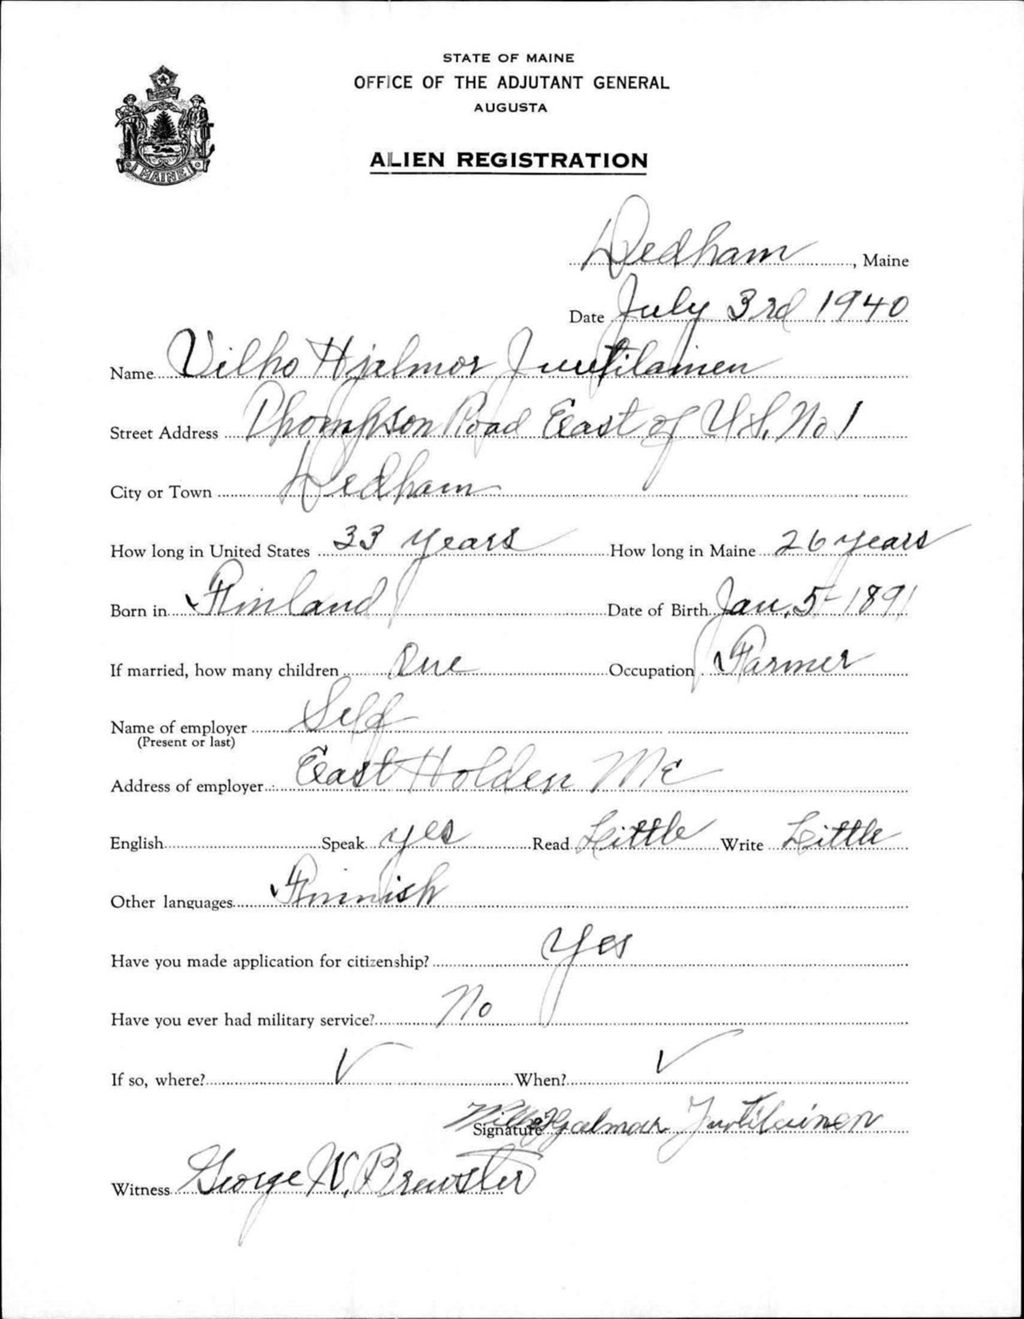 STATE OF MAINE
OFFICE OF THE ADJUTANT GENERAL
AUGUSTA
ALIEN REGISTRATION
MAINE
Dedham, Maine
Date July 3rd 1940
Name Vilho Hjalmor Juutilainen
Street Address Thompson Road East of U.S. No 1
City or Town Dedham
How long in United States 33 years How long in Maine 26 years
Born in Finland Date of Birth Jan, 5-1891
If married, how many children One Occupation Farmer
Name of employer Self
(Present or last)
Address of employer East Holden Me
English Speak yes Read Little Write Little
Other languages Finnish
Have you made application for citizenship? Yes
Have you ever had military service? No
If so, where? ✓ When? ✓
Signature Vilho Hjalmar Juutilainen
Witness George W. Brewster